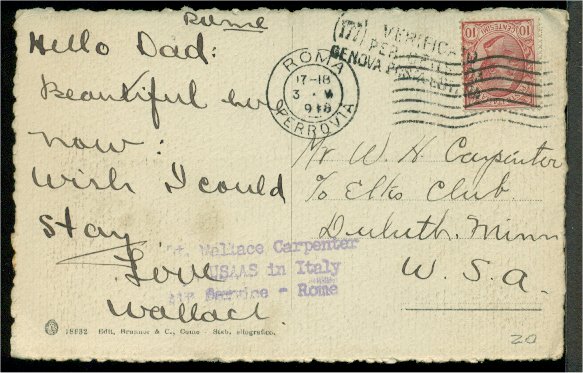 Rome
Hello Dad:
Beautiful
now:
Wish I could
stay
Love
Wallace
Mr W. H. Carpenter
To Elks Club.
Duluth, Minn
U.S.A.
Lt. Wallace Carpenter
USAAS in Italy
Air Service - Rome
ROMA
17-18
3
918
FERROVIA
(177) VERIFICA
PER
GENOVA POSTA
10 CENTESIMI 10
18932 Edit. Brunner & C., Como - Stab. eliografico.
20